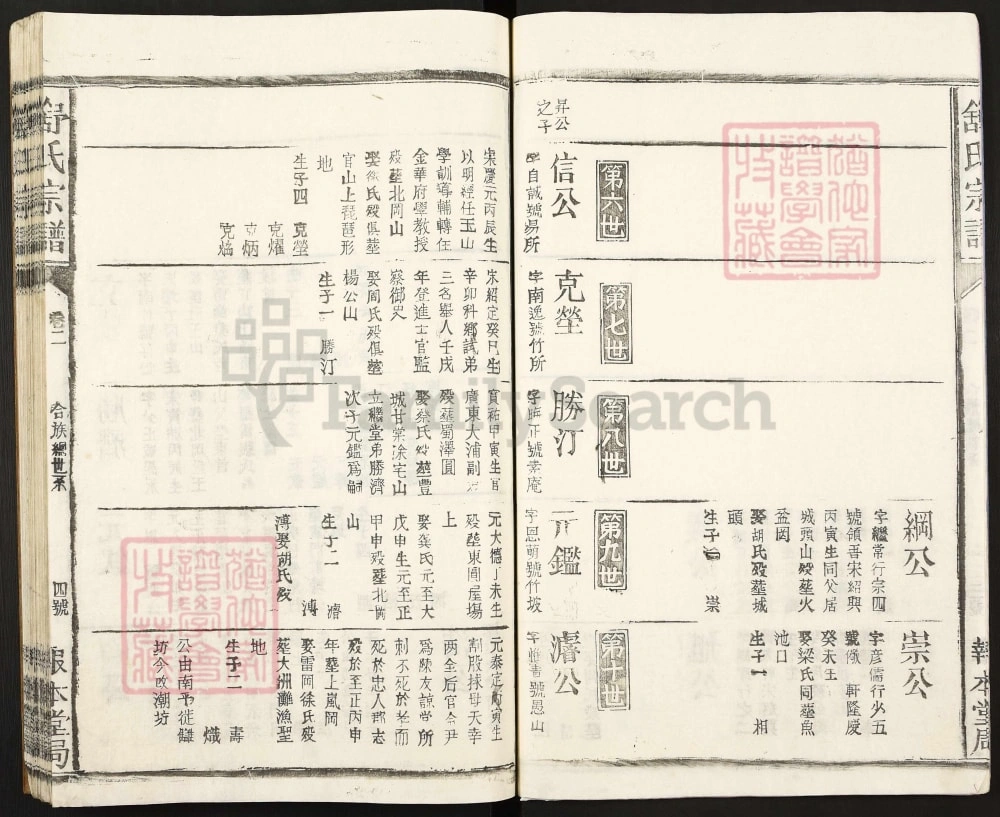 舒氏宗譜
報本堂局
綱公
字繼常行宗四
號領吾宋紹興
丙寅生同父居
城頭山歿塟火
盆岡
娶胡氏歿塟城
頭
崇公
字彥儒行少五
軒隆慶
癸未生
娶梁氏同塟魚
池口
生子一 相
昇公
之子
第六世
信公
字自誠號易所
第七世
克塋
字南逸號竹所
第八世
勝汀
第九世
元鑑
字恩萌號竹坡
第十世
濬公
宋慶元丙辰生
以明經任玉山
學訓導輔轉任
金華府學教授
歿塟北岡山
娶徐氏歿俱塟
官山上琵琶形
地
生子四 克塋
克燿
克炳
克熵
宋紹定癸巳生
辛卯科鄉試弟
三名舉人壬戌
年登進士官監
察御史
娶周氏歿俱塟
楊公山
生子一 勝汀
寶祐甲寅生官
廣東大浦副
歿塟蜀澤圓
娶蔡氏歿塟豐
城甘棠涂宅山
立繼堂弟勝濟
次子元鑑爲嗣
元大德丁未生
歿塟東圓屋塲
上
娶龔氏元至大
戊申生元至正
甲申歿塟北岡
山
生子二 濬
溥
溥娶胡氏歿
元泰定丙寅生
割股救母天幸
两全后官令尹
爲陳友諒掌所
刺不死於孝而
死於忠人郡志
歿於至正丙申
年塟上嵐岡
娶雷岡徐氏歿
塟大洲灘漁聖
地
生子二 壽
熾
公由南平徙
坊今改潮坊
舒氏宗譜
卷二
合族總世系
四號
報本堂局
FamilySearch